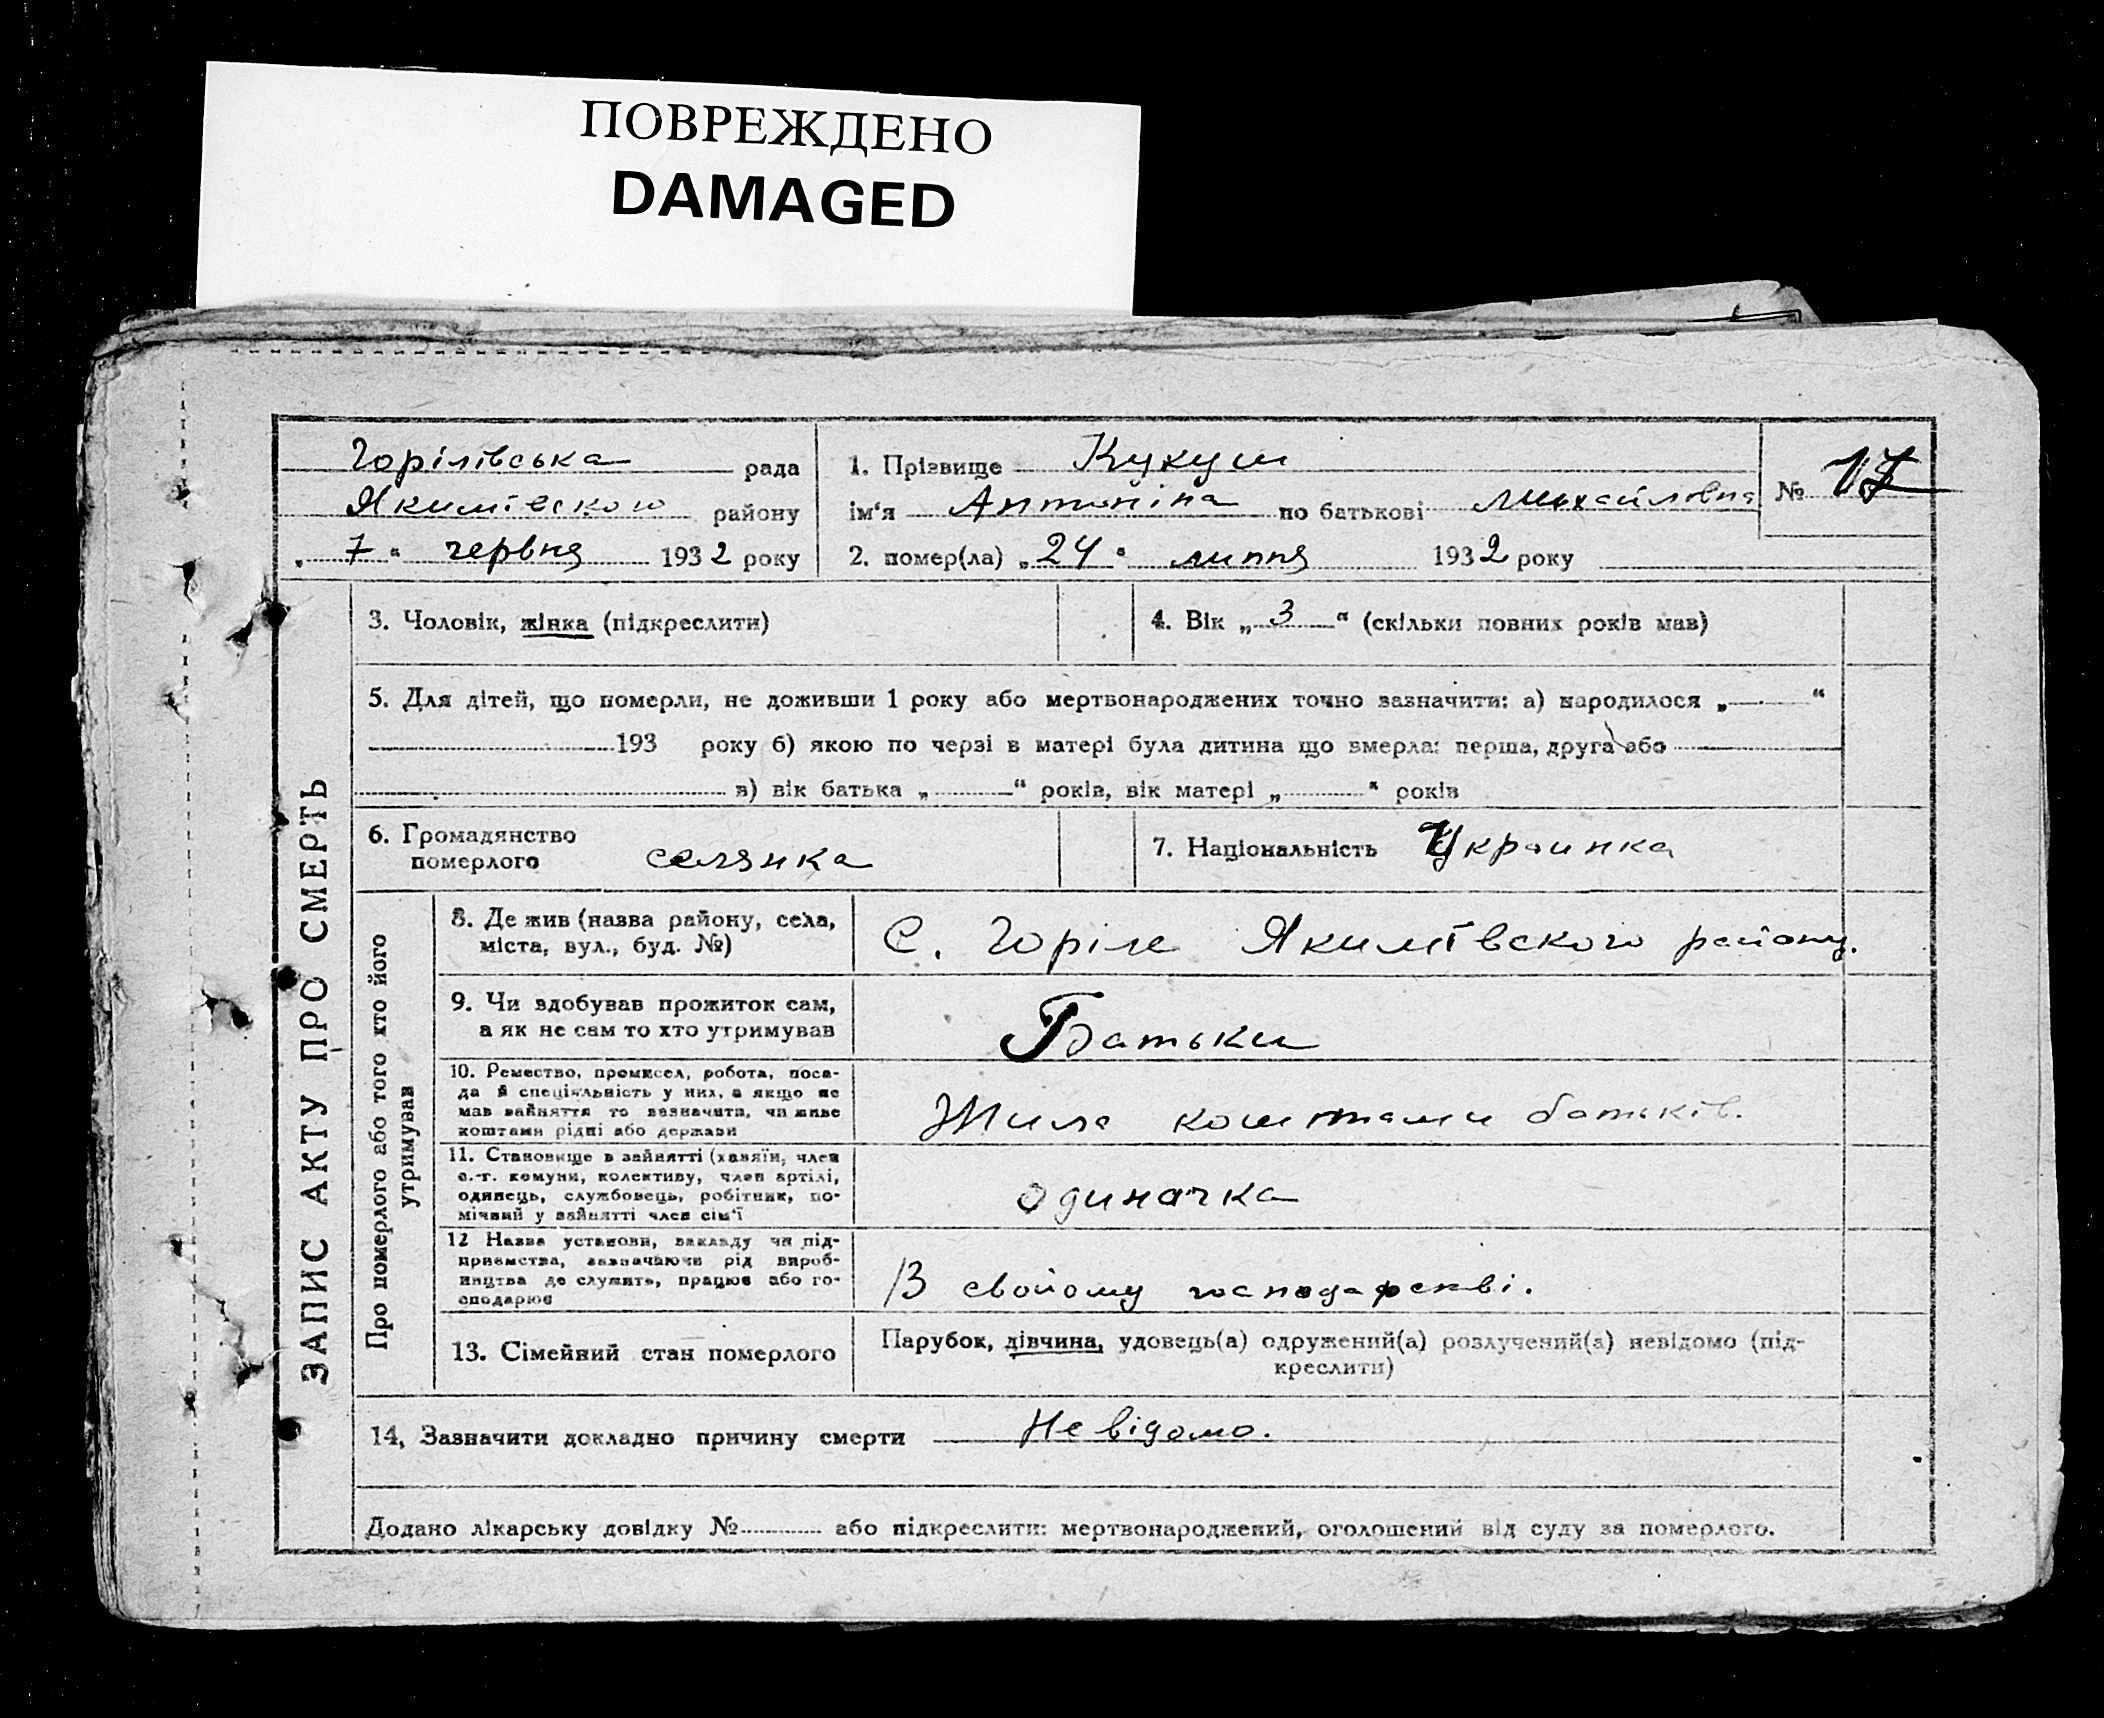 ПОВРЕЖДЕНО
DAMAGED
Горілівська рада
Якимівського району
„ 7 “ червня 1932 року
1. Прізвище Кукуш
ім‘я Антоніна по батькові Михайловна
2. помер(ла) „ 24 “ липня 1932 року
№ 17
ЗАПИС АКТУ ПРО СМЕРТЬ
3. Чоловік, жінка (підкреслити)
4. Вік „ 3 “ (скільки повних років мав)
5. Для дітей, що померли, не доживши 1 року або мертвонароджених точно зазначити: а) народилося „ “
193 року б) якою по черзі в матері була дитина що вмерла: перша, друга або
в) вік батька „ “ років, вік матері „ “ років
6. Громадянство
померлого селянка
7. Національність Украинка
Про померлого або того хто його
утримував
8. Де жив (назва району, села,
міста, вул., буд. №)
С. Горіле Якимівського району.
9. Чи здобував прожиток сам,
а як не сам то хто утримував
Батьки
10. Ремество, промисел, робота, поса-
да й спеціяльність у них, а якщо не
мав зайняття то зазначити, чи живе
коштами рідні або держави
Жила коштами батьків.
11. Становище в зайнятті (хазяїн, член
с.-г. комуни, колективу, член артілі,
одинець, службовець, робітник, по-
мічний у зайнятті член сім‘ї
одиначка
12 Назва установи, закладу чи під-
приємства, зазначаючи рід вироб-
ництва де служить, працює або го-
сподарює
В свойому господарскві.
13. Сімейний стан померлого
Парубок, дівчина, удовець(а) одружений(а) розлучений(а) невідомо (під-
креслити)
14, Зазначити докладно причину смерти Не відомо.
Додано лікарську довідку № або підкреслити: мертвонароджений, оголошений від суду за померлого.